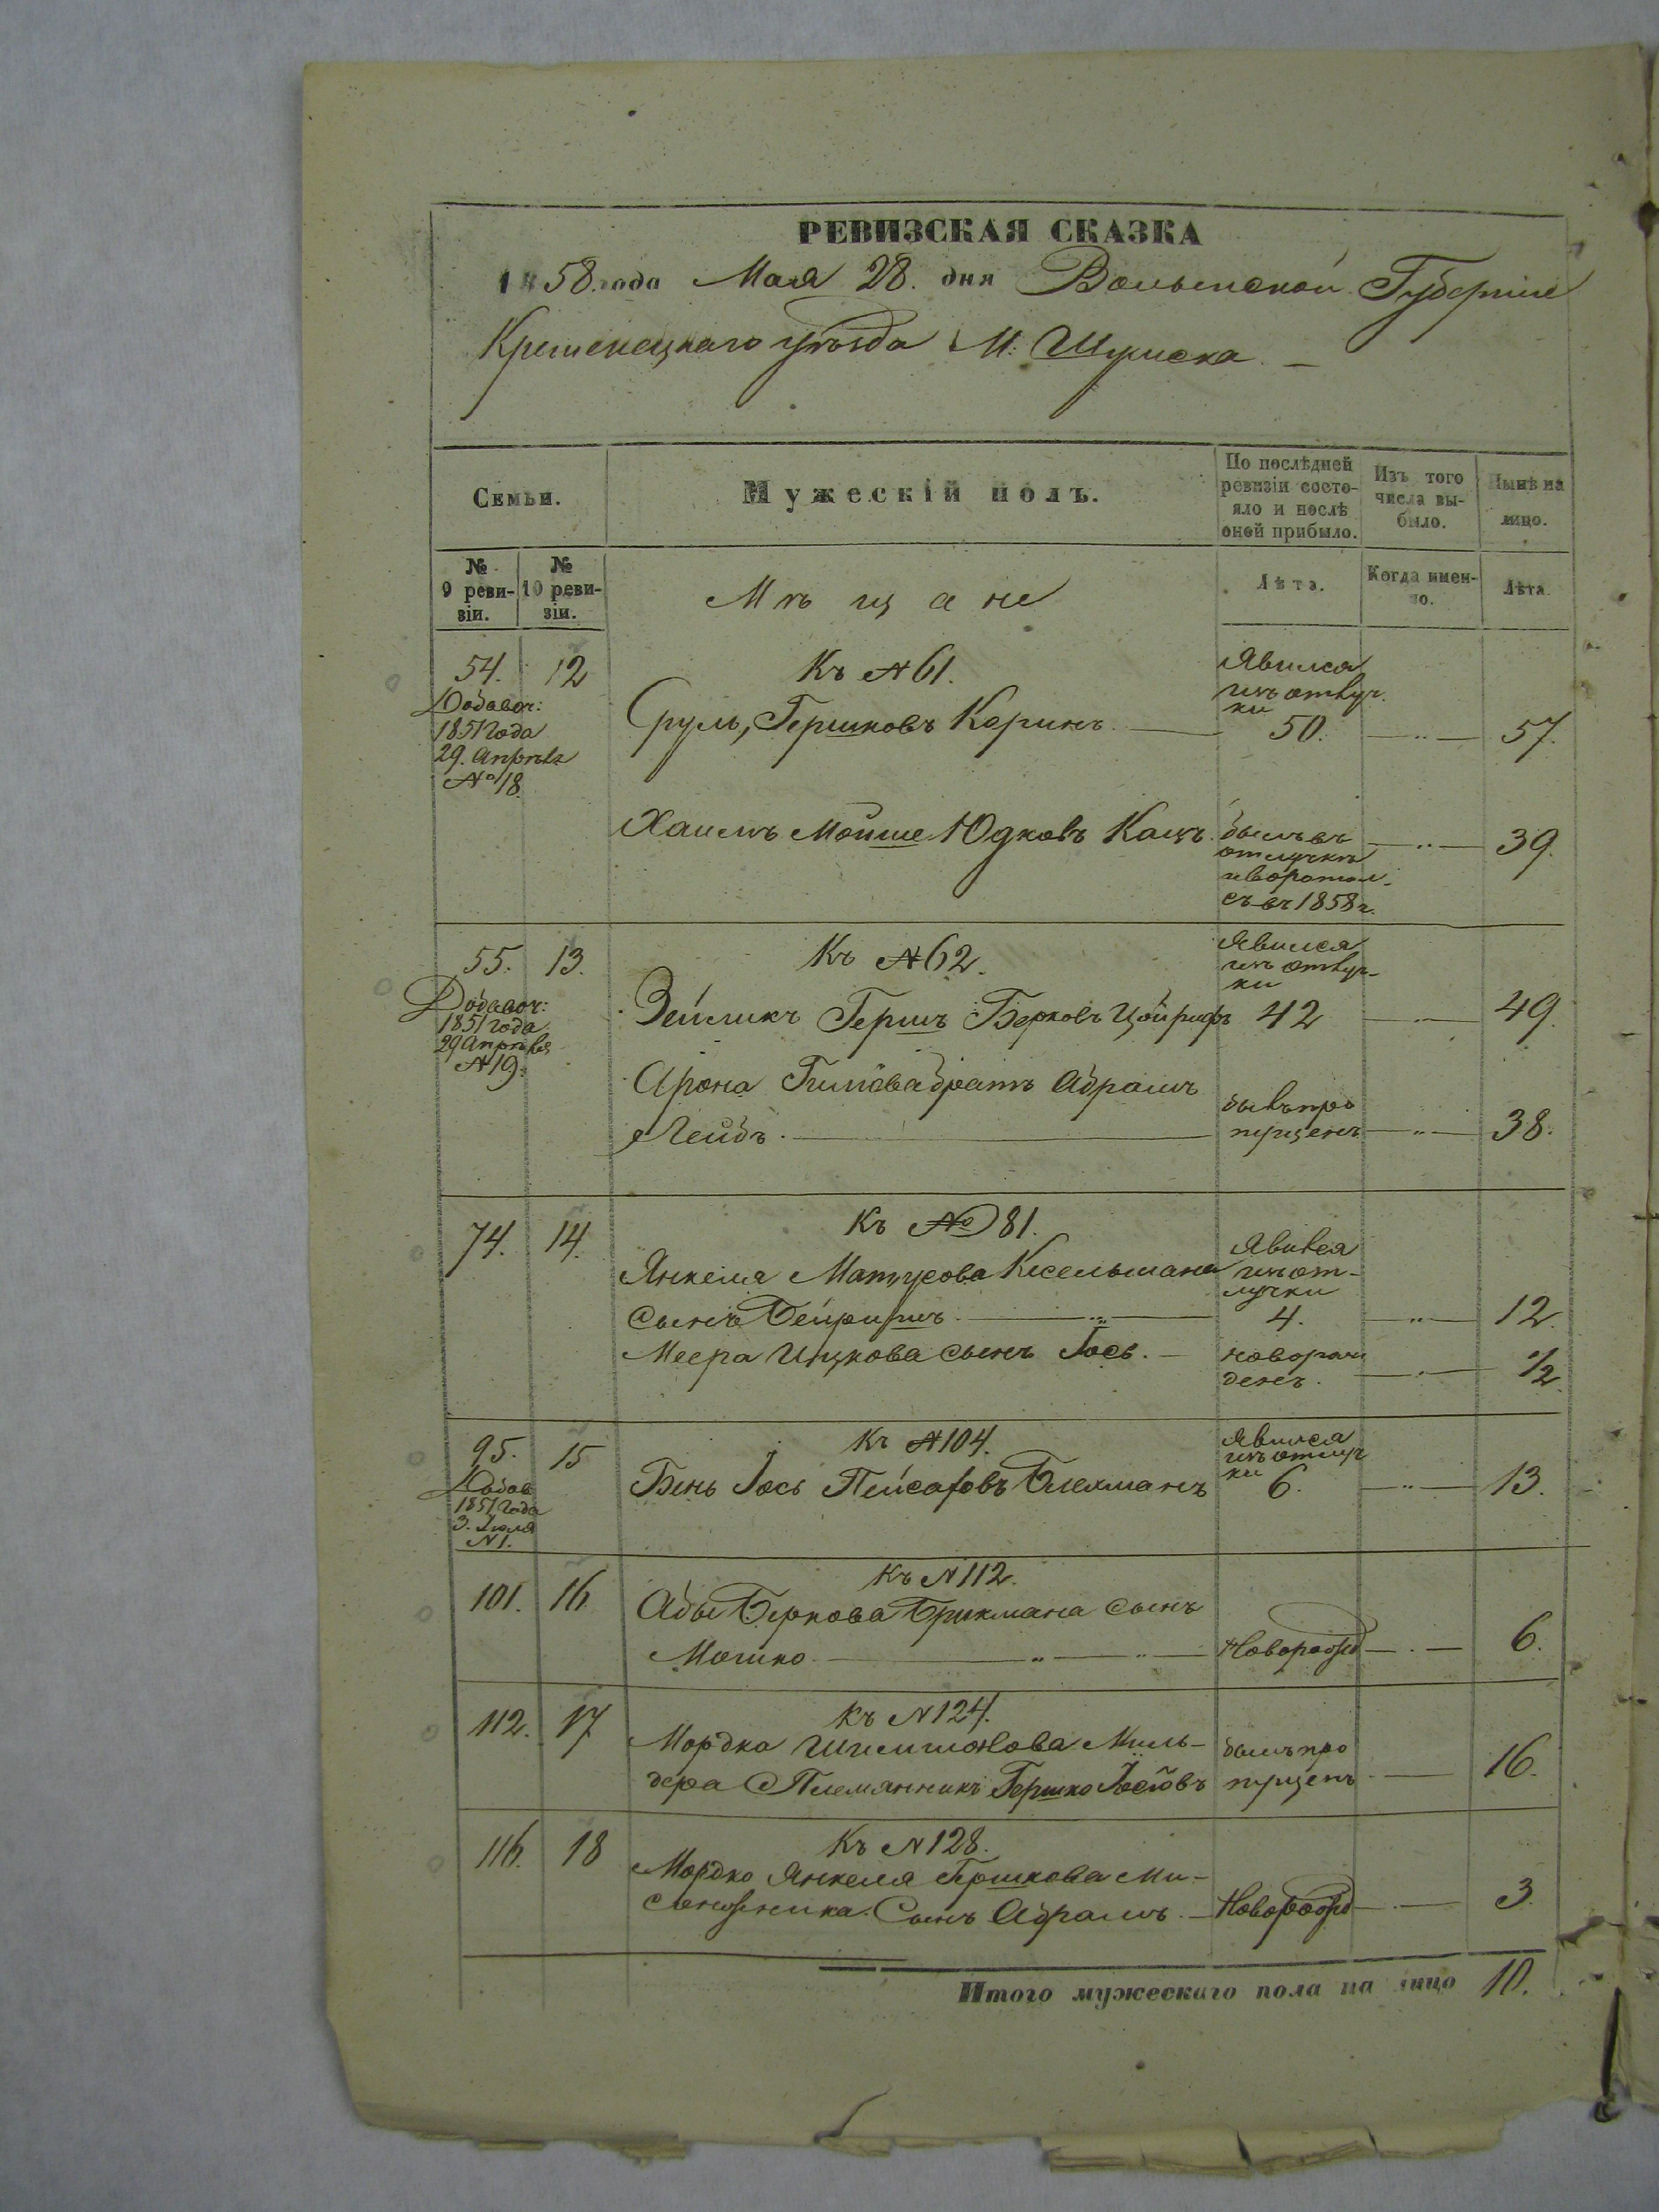 РЕВИЗСКАЯ СКАЗКА
1858 года Мая 28. дня Волынской Губернии
Кременецкаго уѣзда М: Шумска. —
Семьи.
Мужескій полъ.
По послѣдней ревизіи состояло и послѣ оной прибыло.
Изъ того числа выбыло.
Нынѣ на лицо.
№ 9 ревизіи.
№ 10 ревизіи.
Мѣщане
Лѣта.
Когда именно.
Лѣта.
54. 12 Къ №61. Явился
Добавоч: изъ отлуч
1851 года ки
29. Апрѣля Сруль, Гершковъ Коринъ. — 50. — 57.
№ 18.
Хаимъ Мойше Юдковъ Кацъ. былъ въ — 39.
отлучкѣ
и воротил-
съ въ 1858 г.
55. 13. Къ №62. Явился
Добавоч: изъ отлуч-
1851 года ки
29 Апрѣля Зейликъ Гершъ Берковъ 42 — 49.
№ 19.
Арона братъ Абрамъ
Лейбъ. — былъ про
пущенъ — 38.
74. 14. Къ № 81. Явился
изъ от-
лучки
Янкеля Матусова Кесельмана
сынъ — 4. — 12.
Меера Ицкова сынъ Іось. — новорож
денъ. — ½.
95. 15 Къ №104. Явился
Добав изъ отлуч
1851 года ки
3. Іюля Бень Іось Пейсаховъ 6. — 13.
№ 1.
101. 16 Къ №112.
Абы Беркова Брикмана сынъ
Мошко. — Новорожд — 6.
112. 17 Къ №124.
Мордка Шлемионова Миль- былъ про
дера Племянникъ Гершко пущенъ — 16.
116. 18 Къ №128.
Мордко Янкеля Гершкова Ми-
Сынъ Абрамъ. — Новорожд — 3.
Итого мужескаго пола на лицо 10.